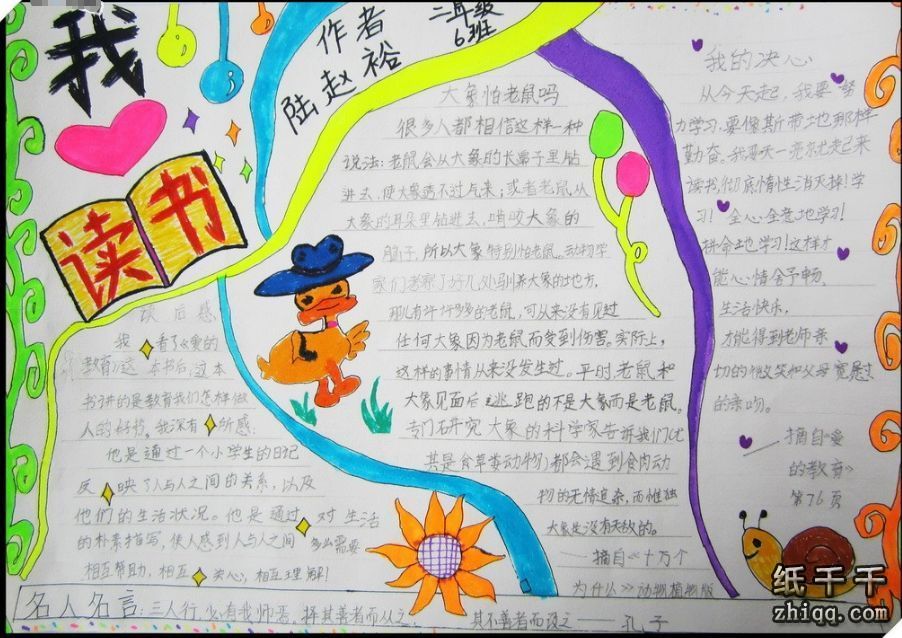 我
读书
作者
陆赵裕
三年级
6班
大象怕老鼠吗
很多人都相信这样一种
说法：老鼠会从大象的长鼻子里钻
进去，使大象透不过气来；或者老鼠从
大象的耳朵里钻进去，啃咬大象的
脑子，所以大象特别怕老鼠。动物学
家们考察了好几处驯养大象的地方，
那儿有许许多多的老鼠，可从来没有见过
任何大象因为老鼠而受到伤害。实际上，
这样的事情从来没发生过。平时老鼠和
大象见面后逃跑的不是大象而是老鼠。
专门研究大象的科学家告诉我们尤
其是食草类动物们都会遇到食肉动
物的无情追杀，而惟独
大象是没有天敌的。
——摘自《十万个
为什么》动物植物版
我的决心
从今天起，我要努
力学习，要像斯带地那样
勤奋。我要天一亮就起来
读书，彻底惰性消灭掉！学
习！全心全意地学习！
拼命地学习！这样才
能心情舒畅，
生活快乐，
才能得到老师亲
切的微笑和父母宽慰
的亲吻。
——摘自《爱
的教育》
第76页
读后感
我看了《爱的
教育》这本书后，这本
书讲的是教育我们怎样做
人的好榜。我深有所感：
他是通过一个小学生的日记
反映了人与人之间的关系，以及
他们的生活状况。他是通过对生活
的朴素描写，使人感到人与人之间多么需要
相互帮助，相互关心，相互理解！
名人名言：三人行，必有我师焉，择其善者而从之，其不善者而改之——孔子
纸千千
zhiqq.com